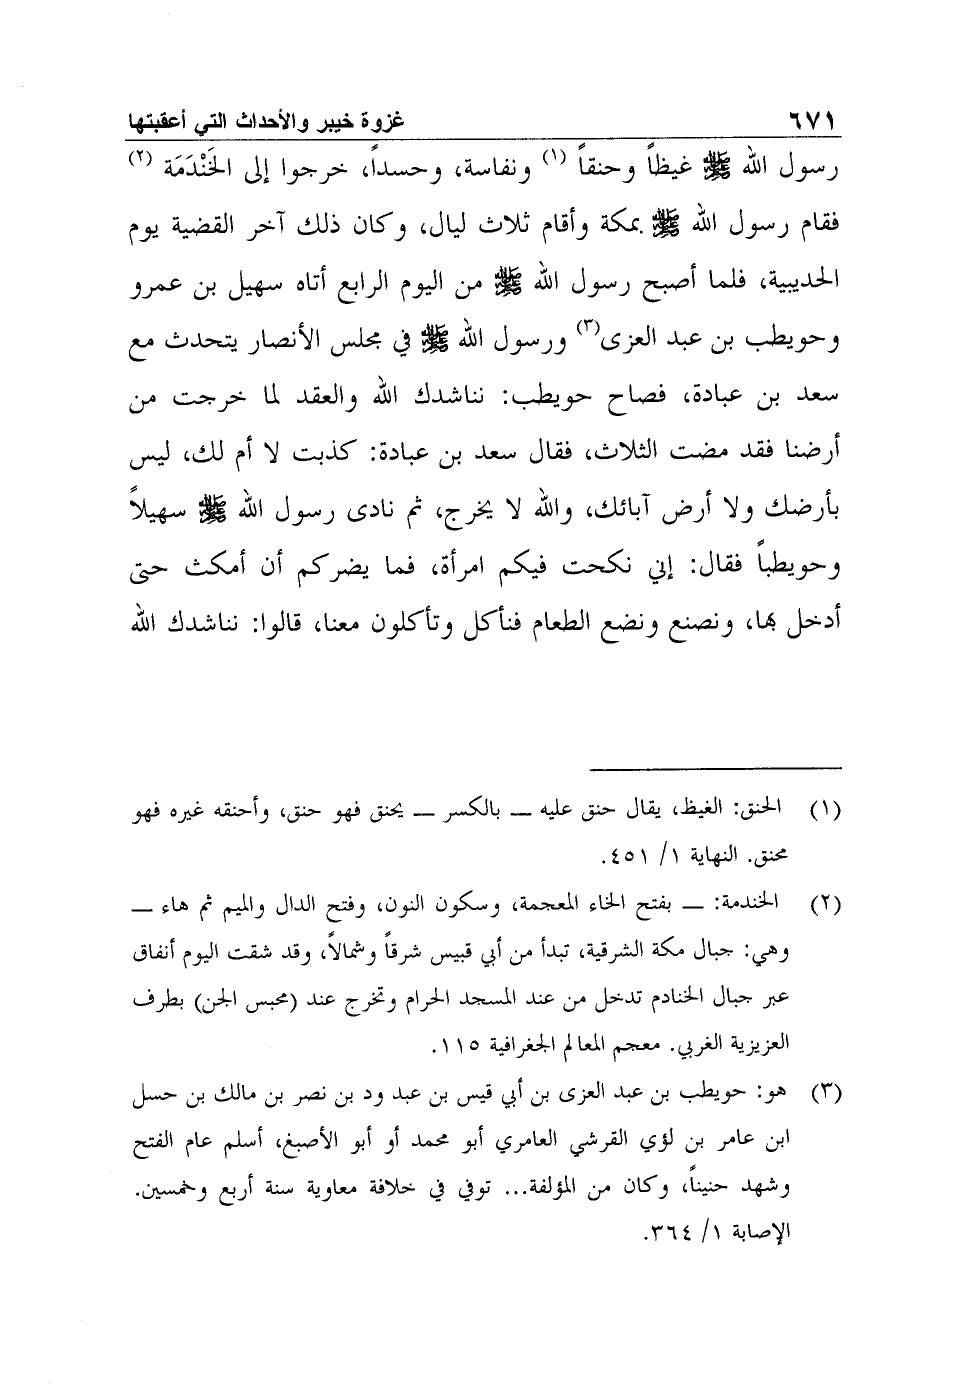 ٦٧١ غزوة خيبر والأحداث التي أعقبتها
رسول الله ﷺ غيظاً وحنقاً (١) ونفاسة، وحسداً، خرجوا إلى الخَنْدَمَة (٢)
فقام رسول الله ﷺ بمكة وأقام ثلاث ليال، وكان ذلك آخر القضية يوم
الحديبية، فلما أصبح رسول الله ﷺ من اليوم الرابع أتاه سهيل بن عمرو
وحويطب بن عبد العزى(٣) ورسول الله ﷺ في مجلس الأنصار يتحدث مع
سعد بن عبادة، فصاح حويطب: نناشدك الله والعقد لما خرجت من
أرضنا فقد مضت الثلاث، فقال سعد بن عبادة: كذبت لا أم لك، ليس
بأرضك ولا أرض آبائك، والله لا يخرج، ثم نادى رسول الله ﷺ سهيلاً
وحويطباً فقال: إني نكحت فيكم امرأة، فما يضركم أن أمكث حتى
أدخل بها، ونصنع ونضع الطعام فنأكل وتأكلون معنا، قالوا: نناشدك الله
(١) الحنق: الغيظ، يقال حنق عليه ــ بالكسر ــ يحنق فهو حنق، وأحنقه غيره فهو
محنق. النهاية ١/ ٤٥١.
(٢) الخندمة: ــ بفتح الخاء المعجمة، وسكون النون، وفتح الدال والميم ثم هاء ــ
وهي: جبال مكة الشرقية، تبدأ من أبي قبيس شرقاً وشمالاً، وقد شقت اليوم أنفاق
عبر جبال الخنادم تدخل من عند المسجد الحرام وتخرج عند (محبس الجن) بطرف
العزيزية الغربي. معجم المعالم الجغرافية ١١٥.
(٣) هو: حويطب بن عبد العزى بن أبي قيس بن عبد ود بن نصر بن مالك بن حسل
ابن عامر بن لؤي القرشي العامري أبو محمد أو أبو الأصبغ، أسلم عام الفتح
وشهد حنيناً، وكان من المؤلفة... توفي في خلافة معاوية سنة أربع وخمسين.
الإصابة ١/ ٣٦٤.